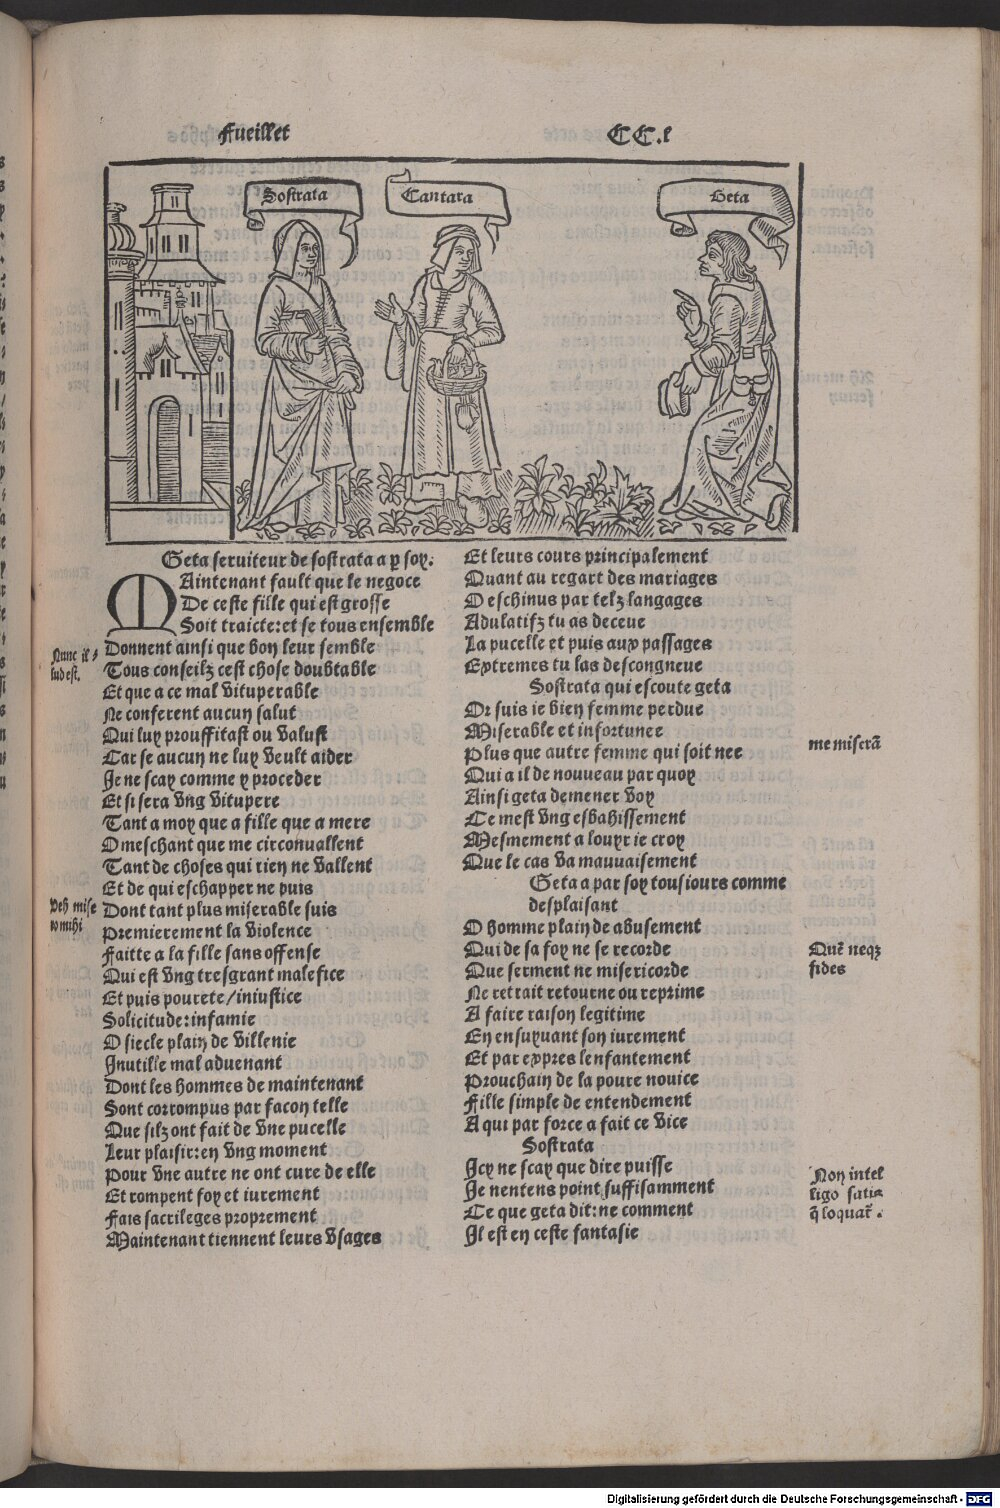 Fueillet CC.l
Sostrata
Cantara
Geta
Geta seruiteur de sostrata a p soy.
MAintenant fault que le negoce
De ceste fille qui est grosse
Soit traicte: et se tous ensemble
Donnent ainsi que bon leur semble
Tous conseilz cest chose doubtable
Et que a ce mal vituperable
Ne conferent aucun salut
Qui luy prouffitast ou valust
Car se aucun ne luy veult aider
Je ne scay comme y proceder
Et si sera vng vitupere
Tant a moy que a fille que a mere
O meschant que me circonuallent
Tant de choses qui rien ne vallent
Et de qui eschapper ne puis
Dont tant plus miserable suis
Premierement la violence
Faitte a la fille sans offense
Qui est vng tresgrant malefice
Et puis pourete/iniustice
Solicitude: infamie
O siecle plain de villenie
Inutille mal aduenant
Dont les hommes de maintenant
Sont corrompus par facon telle
Que silz ont fait de vne pucelle
Leur plaisir: en vng moment
Pour vne autre ne ont cure de elle
Et rompent foy et iurement
Fais sacrileges proprement
Maintenant tiennent leurs vsages
Nunc il-
lud est.
Veh mise
ro mihi
Et leurs cours principalement
Quant au regart des mariages
O eschinus par telz langages
Adulatifz tu as deceue
La pucelle et puis aux passages
Extremes tu las descongneue
Sostrata qui escoute geta
Or suis ie bien femme perdue
Miserable et infortunee
Plus que autre femme qui soit nee
Qui a il de nouueau par quoy
Ainsi geta demener voy
Ce mest vng esbahissement
Mesmement a louyr ie croy
Que le cas va mauuaisement
Geta a par soy tousiours comme
desplaisant
O homme plain de abusement
Qui de sa foy ne se recorde
Que serment ne misericorde
Ne retrait retourne ou reprime
A faire raison legitime
En ensuyuant son iurement
Et par expres lenfantement
Prouchain de la poure nouice
Fille simple de entendement
A qui par force a fait ce vice
Sostrata
Icy ne scay que dire puisse
Je nentens point suffisamment
Ce que geta dit: ne comment
Il est en ceste fantasie
me miserā
Quē neqz
fides
Non intel
ligo satis
q̄ loquat̄.
Digitalisierung gefördert durch die Deutsche Forschungsgemeinschaft - DFG